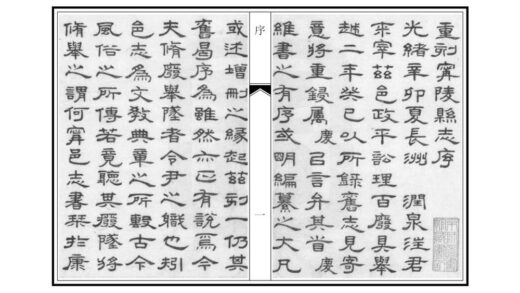 重刻甯陵縣志序
光緒辛卯夏長洲 潤泉汪君
來宰茲邑政平訟理百廢具舉
越二年癸巳以所錄舊志見寄
意將重鋟屬慶㠯言弁其首慶
維書之有序或明編纂之大凡
序
一
或述增刪之緣起茲刻一仍其
舊曷序為雖然亦正有說焉今
夫脩廢舉墜者令尹之職也矧
邑志為文敎典章之所繫古今
風俗之所傳若竟聽其廢墜將
脩舉之謂何甯邑志書栞於康